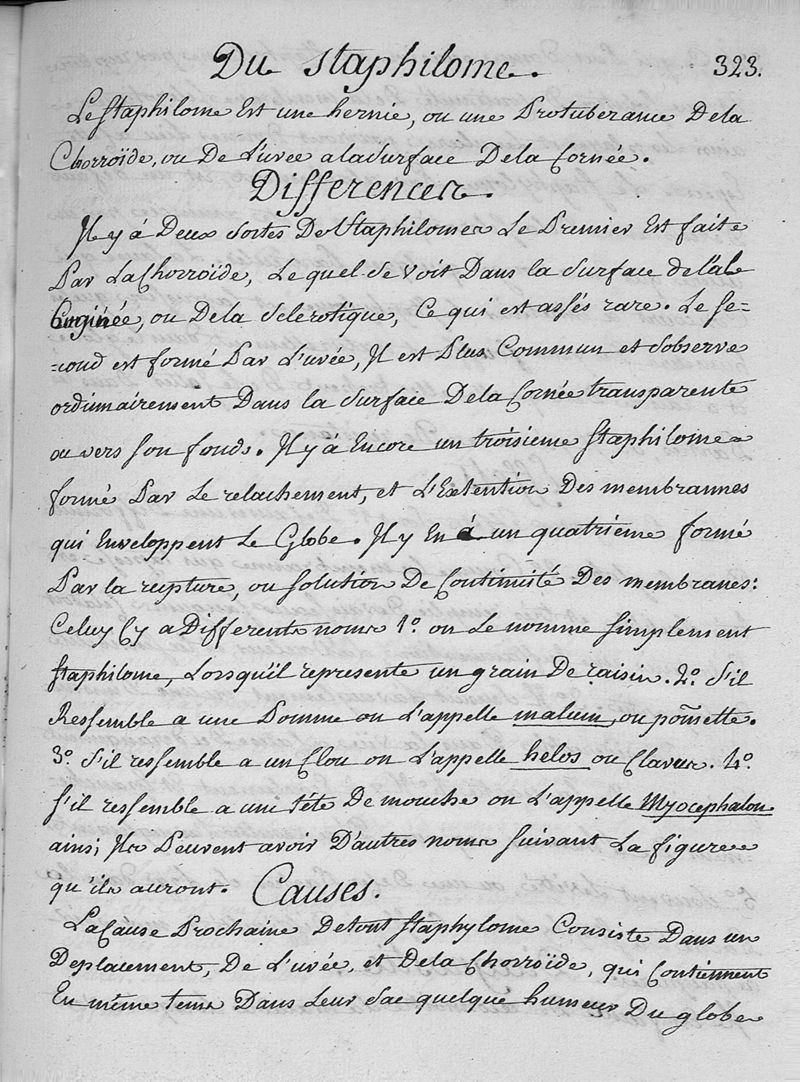 Du staphilome.
323.
Le staphilome Est une hernie, ou une Protuberance De la
Chorroïde, ou De L'uvée a la surface De la Cornée.
Differences.
Il y à Deux sortes De staphilomes Le Premier Est faite
Par La Chorroïde, Le quel se voit Dans la surface de l'al-
buginée, ou De la sclerotique, Ce qui est assés rare. Le se=
=cond est formé Par L'uvée, Il est Plus Commun et s'observe
ordinairement Dans la surface De la Cornée transparente
ou vers son fonds. Il y à Encore un troisieme staphilome
formé Par Le relachement, et L'Extention Des membrannes
qui Enveloppent Le Globe. Il y En à un quatrieme formé
Par la rupture, ou solution De Continuité Des membranes:
Celuy Cy a Differents noms 1.º on Le nomme simplement
staphilome, Lorsqu'il represente un grain De raisin. 2.º s'il
Ressemble a une Pomme on L'appelle malum, ou pom̃ette.
3.º s'il ressemble a un Clou on L'appelle helos ou Clavus. 4.º
s'il ressemble a une tête De mouche on L'appelle Myocephalon
ainsi; Ils Peuvent avoir D'autres noms suivant La figure
qu'ils auront. Causes.
La Cause Prochaine De tout staphylome Consiste Dans un
Deplacement, De L'uvée, et De la Chorroïde, qui Contiennent
En même tems Dans Leur sac quelque humeur Du globe